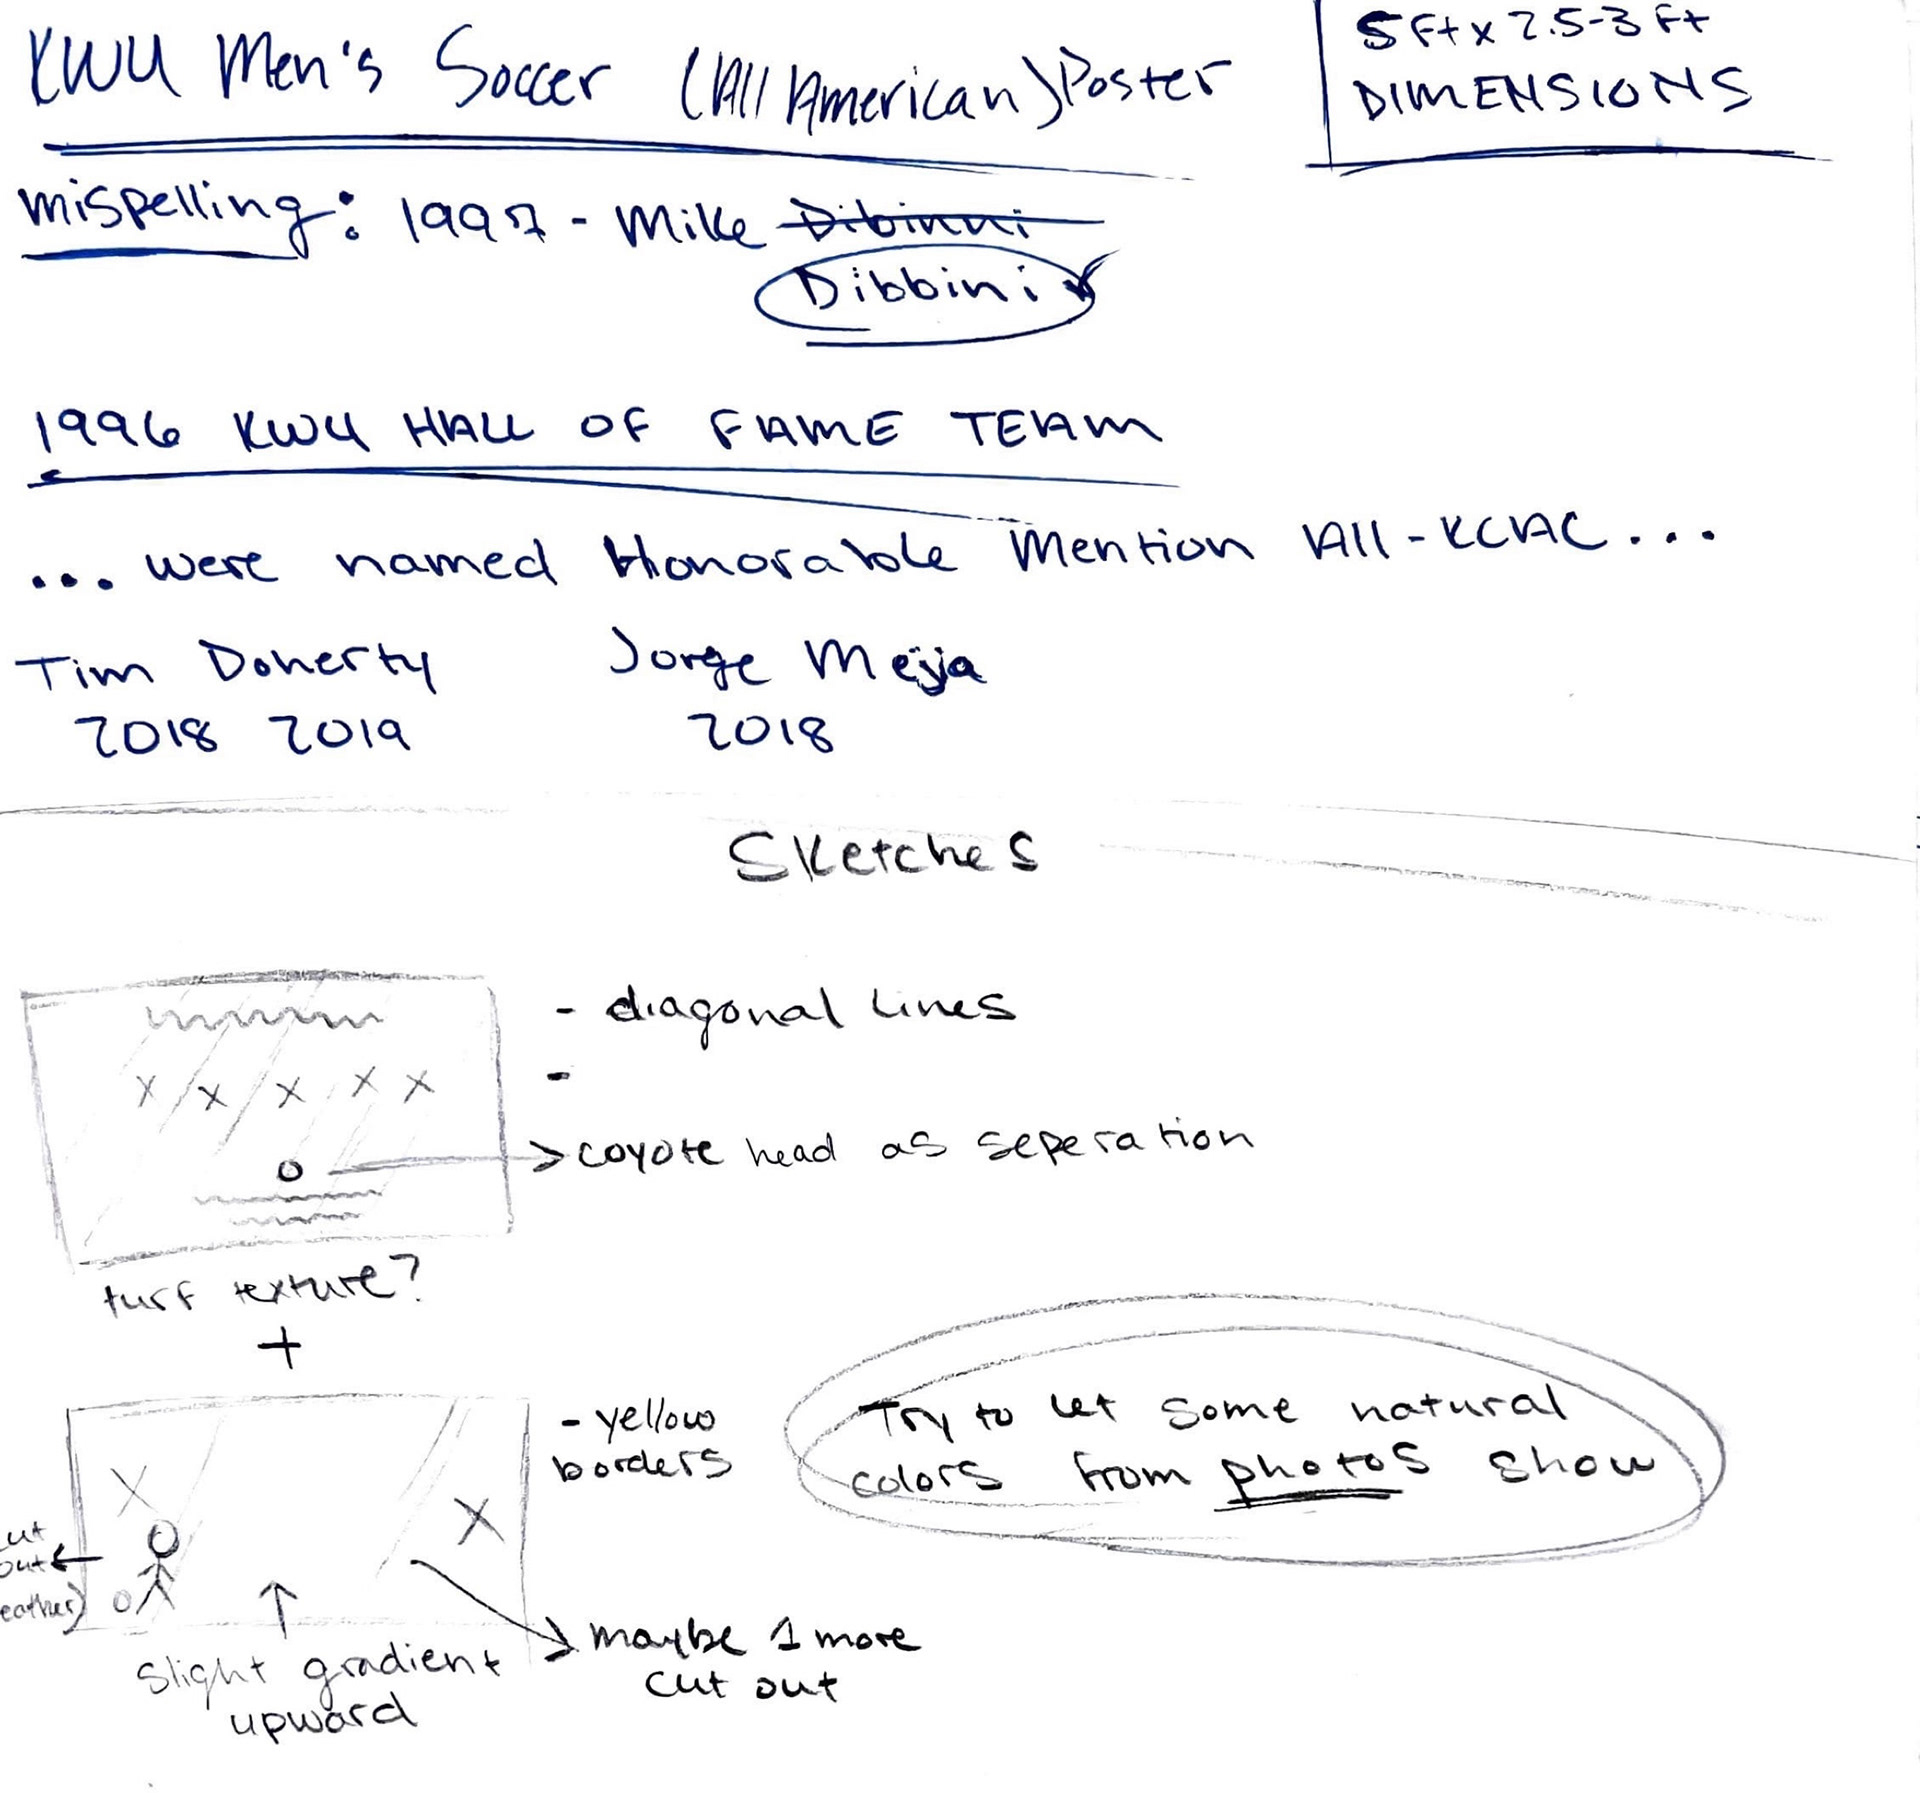 KWU Men's Soccer (All American) Poster
5 Ft x 2.5-3 Ft
DIMENSIONS
mispelling: 1997 - Mike Dibinni
Dibbini
1996 KWU HALL OF FAME TEAM
... were named Honorable Mention All-KCAC...
Tim Doherty Jorge Mejia
2018 2019 2018
Sketches
- diagonal lines
-
coyote head as seperation
turf texture?
+
- yellow
borders
Try to let some natural
colors from photos show
out
slight gradient
upward
maybe 1 more
cut out